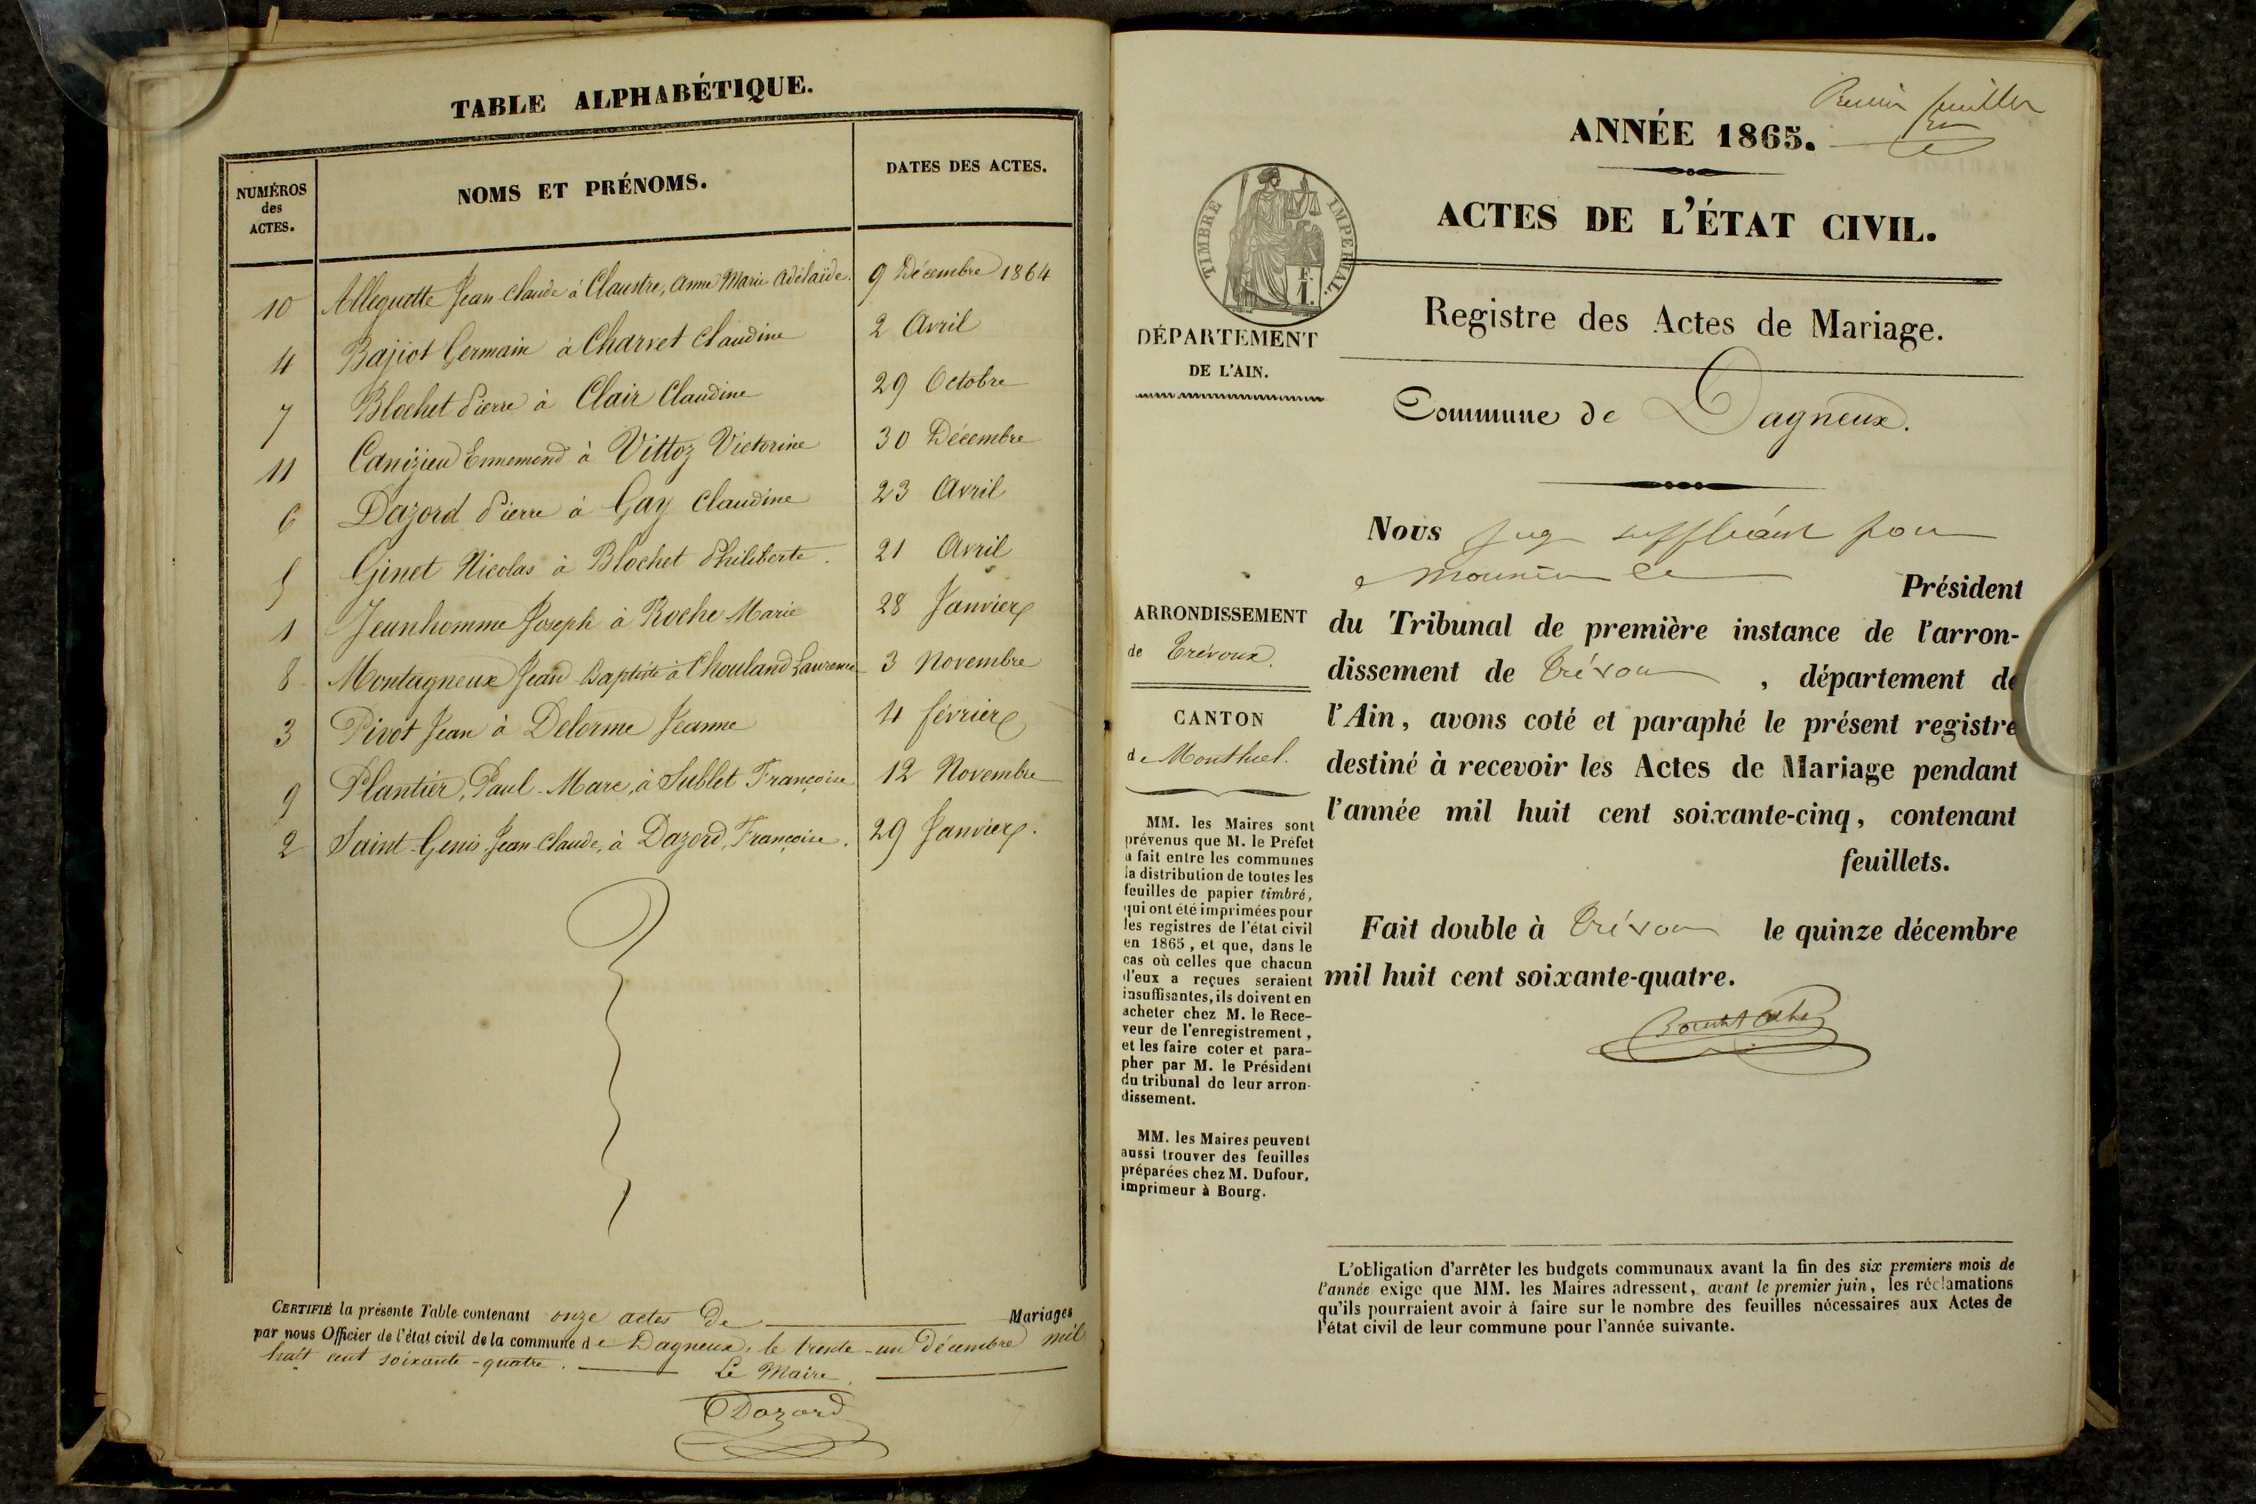 TABLE ALPHABÉTIQUE.
NUMÉROS des ACTES. NOMS ET PRÉNOMS. DATES DES ACTES.
10 Alleguette Jean Claude à Claustre, Anne Marie Adélaïde. 9 Décembre 1864
4 Bajiot Germain à Charvet Claudine 2 Avril
7 Blochet Pierre à Clair Claudine 29 Octobre
11 Canizieu Ennemond à Vittoz Victorine 30 Décembre
6 Dazord Pierre à Gay Claudine 23 Avril
5 Ginet Nicolas à Blochet Philiberte. 21 Avril
1 Jeunhomme Joseph à Roche Marie 28 Janvier
8 Montagneux Jean Baptiste à Chouland Laurence 3 Novembre
3 Pivot Jean à Delorme Jeanne 4 février
9 Plantier, Paul-Marc, à Sublet Françoise 12 Novembre
2 Saint-Genis Jean Claude, à Dazord, Françoise. 29 Janvier.
CERTIFIÉ la présente Table contenant onze actes de Mariages
par nous Officier de l'état civil de la commune de Dagneux, le trente-un Décembre mil
huit cent soixante-quatre.
Le Maire.
Dazord
Premier feuillet
ANNÉE 1865.
ACTES DE L'ÉTAT CIVIL.
TIMBRE IMPÉRIAL.
Registre des Actes de Mariage.
DÉPARTEMENT
DE L'AIN.
Commune de Dagneux.
ARRONDISSEMENT
de Trévoux.
CANTON
de Montluel.
MM. les Maires sont
prévenus que M. le Préfet
a fait entre les communes
la distribution de toutes les
feuilles de papier timbré,
qui ont été imprimées pour
les registres de l'état civil
en 1865, et que, dans le
cas où celles que chacun
d'eux a reçues seraient
insuffisantes, ils doivent en
acheter chez M. le Rece-
veur de l'enregistrement,
et les faire coter et para-
pher par M. le Président
du tribunal de leur arron-
dissement.
MM. les Maires peuvent
aussi trouver des feuilles
préparées chez M. Dufour,
imprimeur à Bourg.
Nous juge suppléant pour
Monsieur le Président
du Tribunal de première instance de l'arron-
dissement de Trévoux, département de
l'Ain, avons coté et paraphé le présent registre
destiné à recevoir les Actes de Mariage pendant
l'année mil huit cent soixante-cinq, contenant
feuillets.
Fait double à Trévoux le quinze décembre
mil huit cent soixante-quatre.
L'obligation d'arrêter les budgets communaux avant la fin des six premiers mois de
l'année exige que MM. les Maires adressent, avant le premier juin, les réclamations
qu'ils pourraient avoir à faire sur le nombre des feuilles nécessaires aux Actes de
l'état civil de leur commune pour l'année suivante.